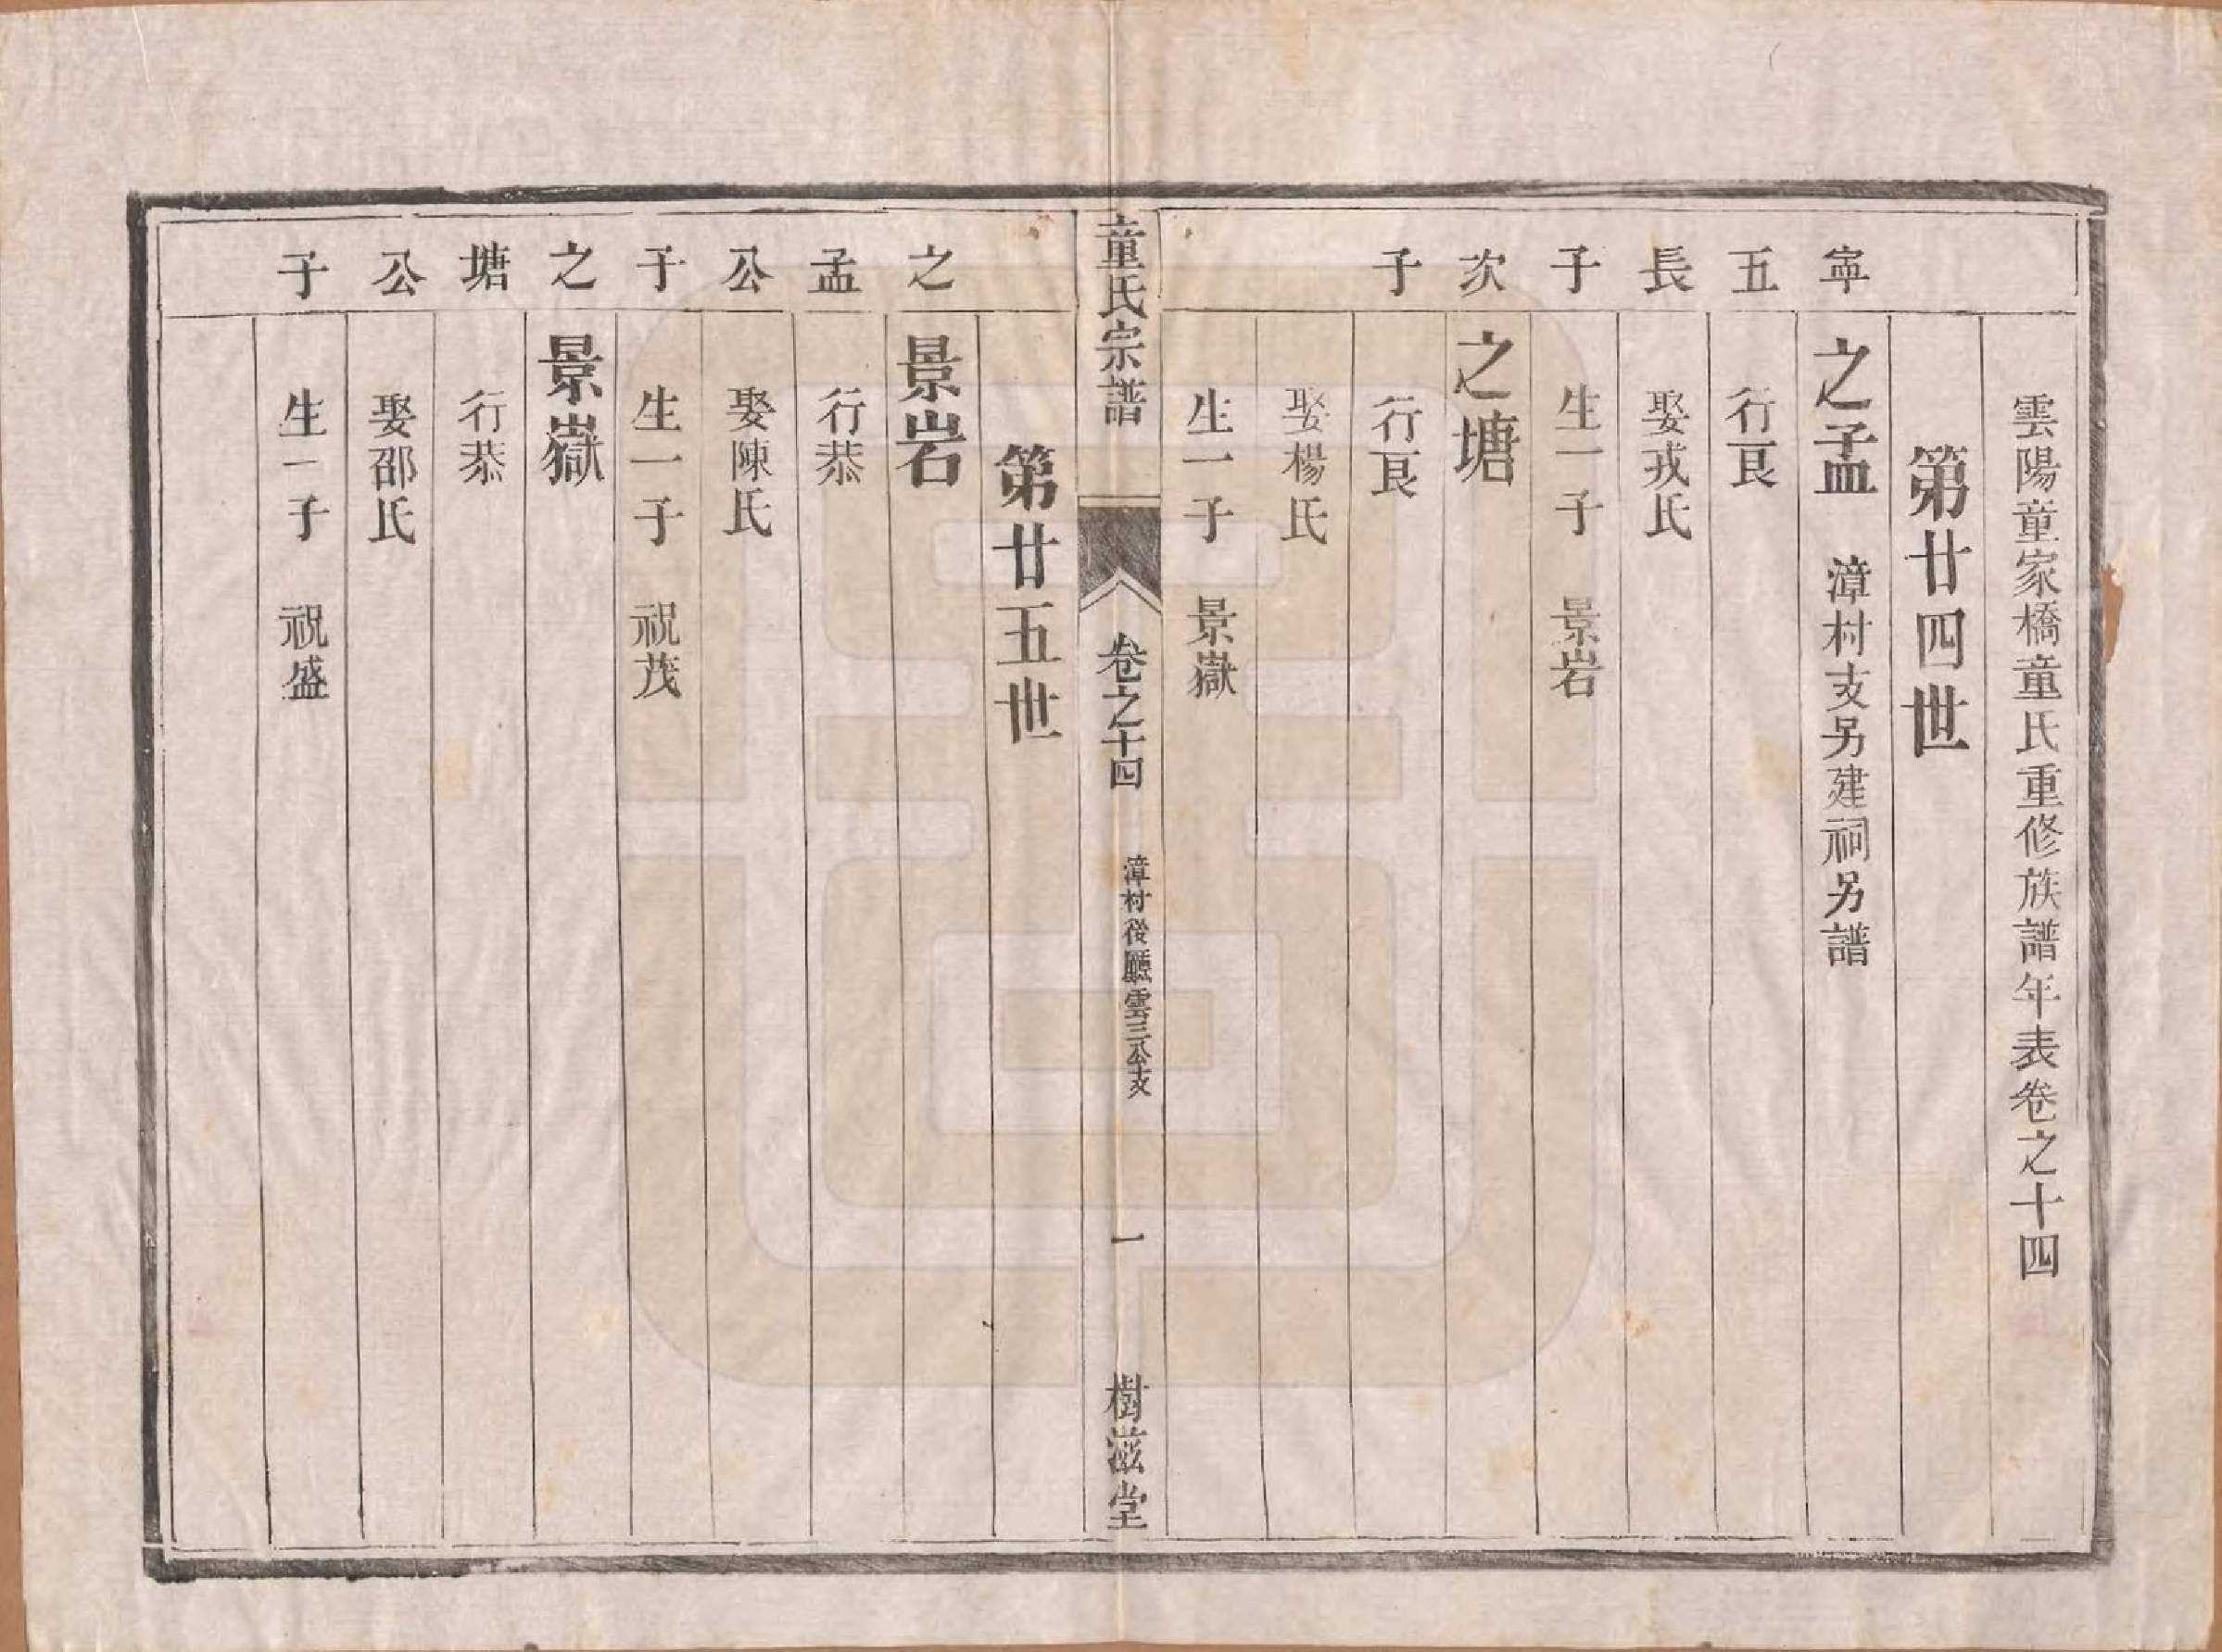 雲陽童家橋童氏重修族譜年表卷之十四
第廿四世
寧五長子
之孟 漳村支另建祠另譜
行良
娶戎氏
生一子 景岩
次子
之塘
行良
娶楊氏
生一子 景嶽
童氏宗譜 卷之十四 漳村後廳雲三公支 一 樹滋堂
第廿五世
之孟公子
景岩
行恭
娶陳氏
生一子 祝茂
之塘公子
景嶽
行恭
娶邵氏
生一子 祝盛